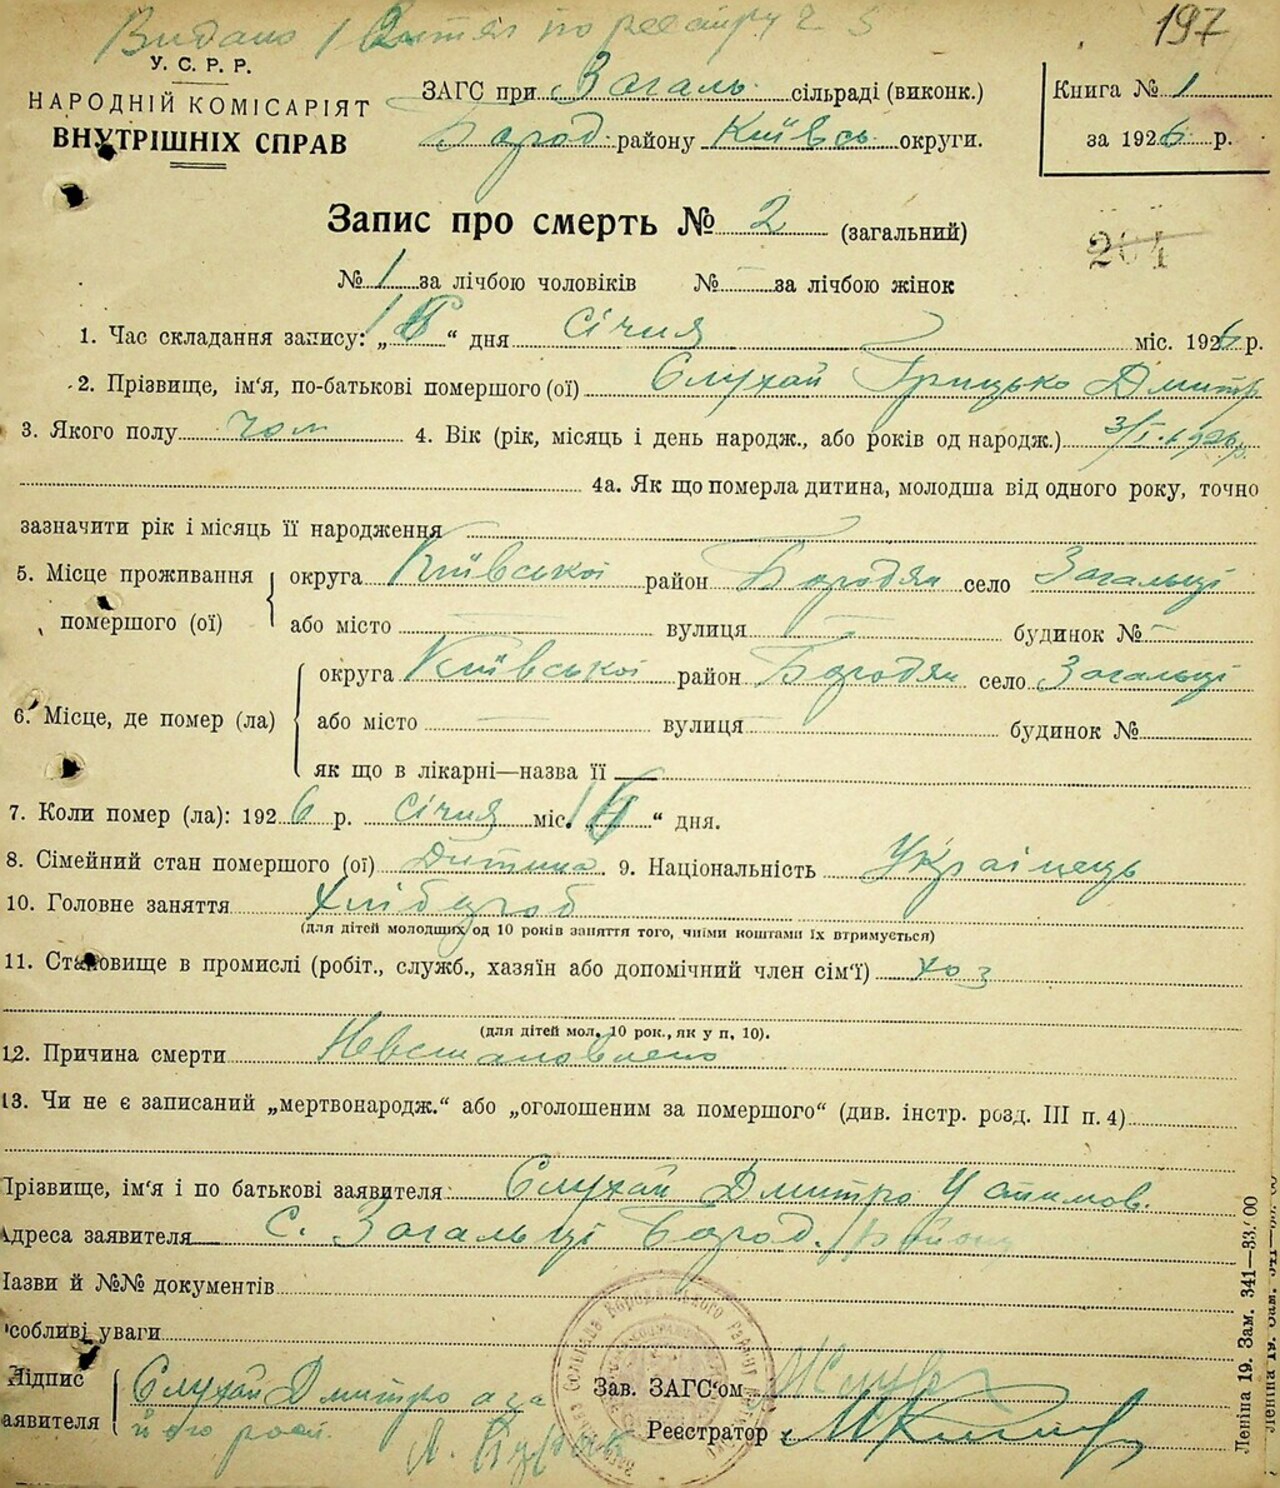 Видано 1 Витяг по реєстру ч. 5
197
У. С. Р. Р.
НАРОДНІЙ КОМІСАРІЯТ
ВНУТРІШНІХ СПРАВ
ЗАГС при Загаль. сільраді (виконк.)
Бород. району Київсь округи.
Книга № 1
за 1926 р.
Запис про смерть № 2 (загальний)
204
№ 1 за лічбою чоловіків № – за лічбою жінок
1. Час складання запису: „ “ дня Січня міс. 1926 р.
2. Прізвище, ім'я, по-батькові помершого (ої) Слухай Грицько Дмитр
3. Якого полу чол 4. Вік (рік, місяць і день народж., або років од народж.) 3/I. 1926 р.
4а. Як що померла дитина, молодша від одного року, точно
зазначити рік і місяць її народження
5. Місце проживання помершого (ої) округа Київської район Бородян село Загальці
або місто – вулиця – будинок № –
6. Місце, де помер (ла) округа Київської район Бородян село Загальці
або місто – вулиця – будинок №
як що в лікарні—назва її —
7. Коли помер (ла): 1926 р. січня міс. „ “ дня.
8. Сімейний стан помершого (ої) Дитина. 9. Національність Українець
10. Головне заняття Хлібороб
(для дітей молодших од 10 років заняття того, чиїми коштами їх втримується)
11. Становище в промислі (робіт., служб., хазяїн або допомічний член сім'ї) хоз
(для дітей мол. 10 рок., як у п. 10).
12. Причина смерти Невстановлено
13. Чи не є записаний „мертвонародж.“ або „оголошеним за помершого“ (див. інстр. розд. III п. 4)
Прізвище, ім'я і по батькові заявителя Слухай Дмитро
Адреса заявителя С. Загальці Бород. Району
Назви й №№ документів
Особливі уваги
Підпис заявителя Слухай Дмитро а за
його
Зав. ЗАГС'ом
Реєстратор
Леніна 19. Зам. 341—83.